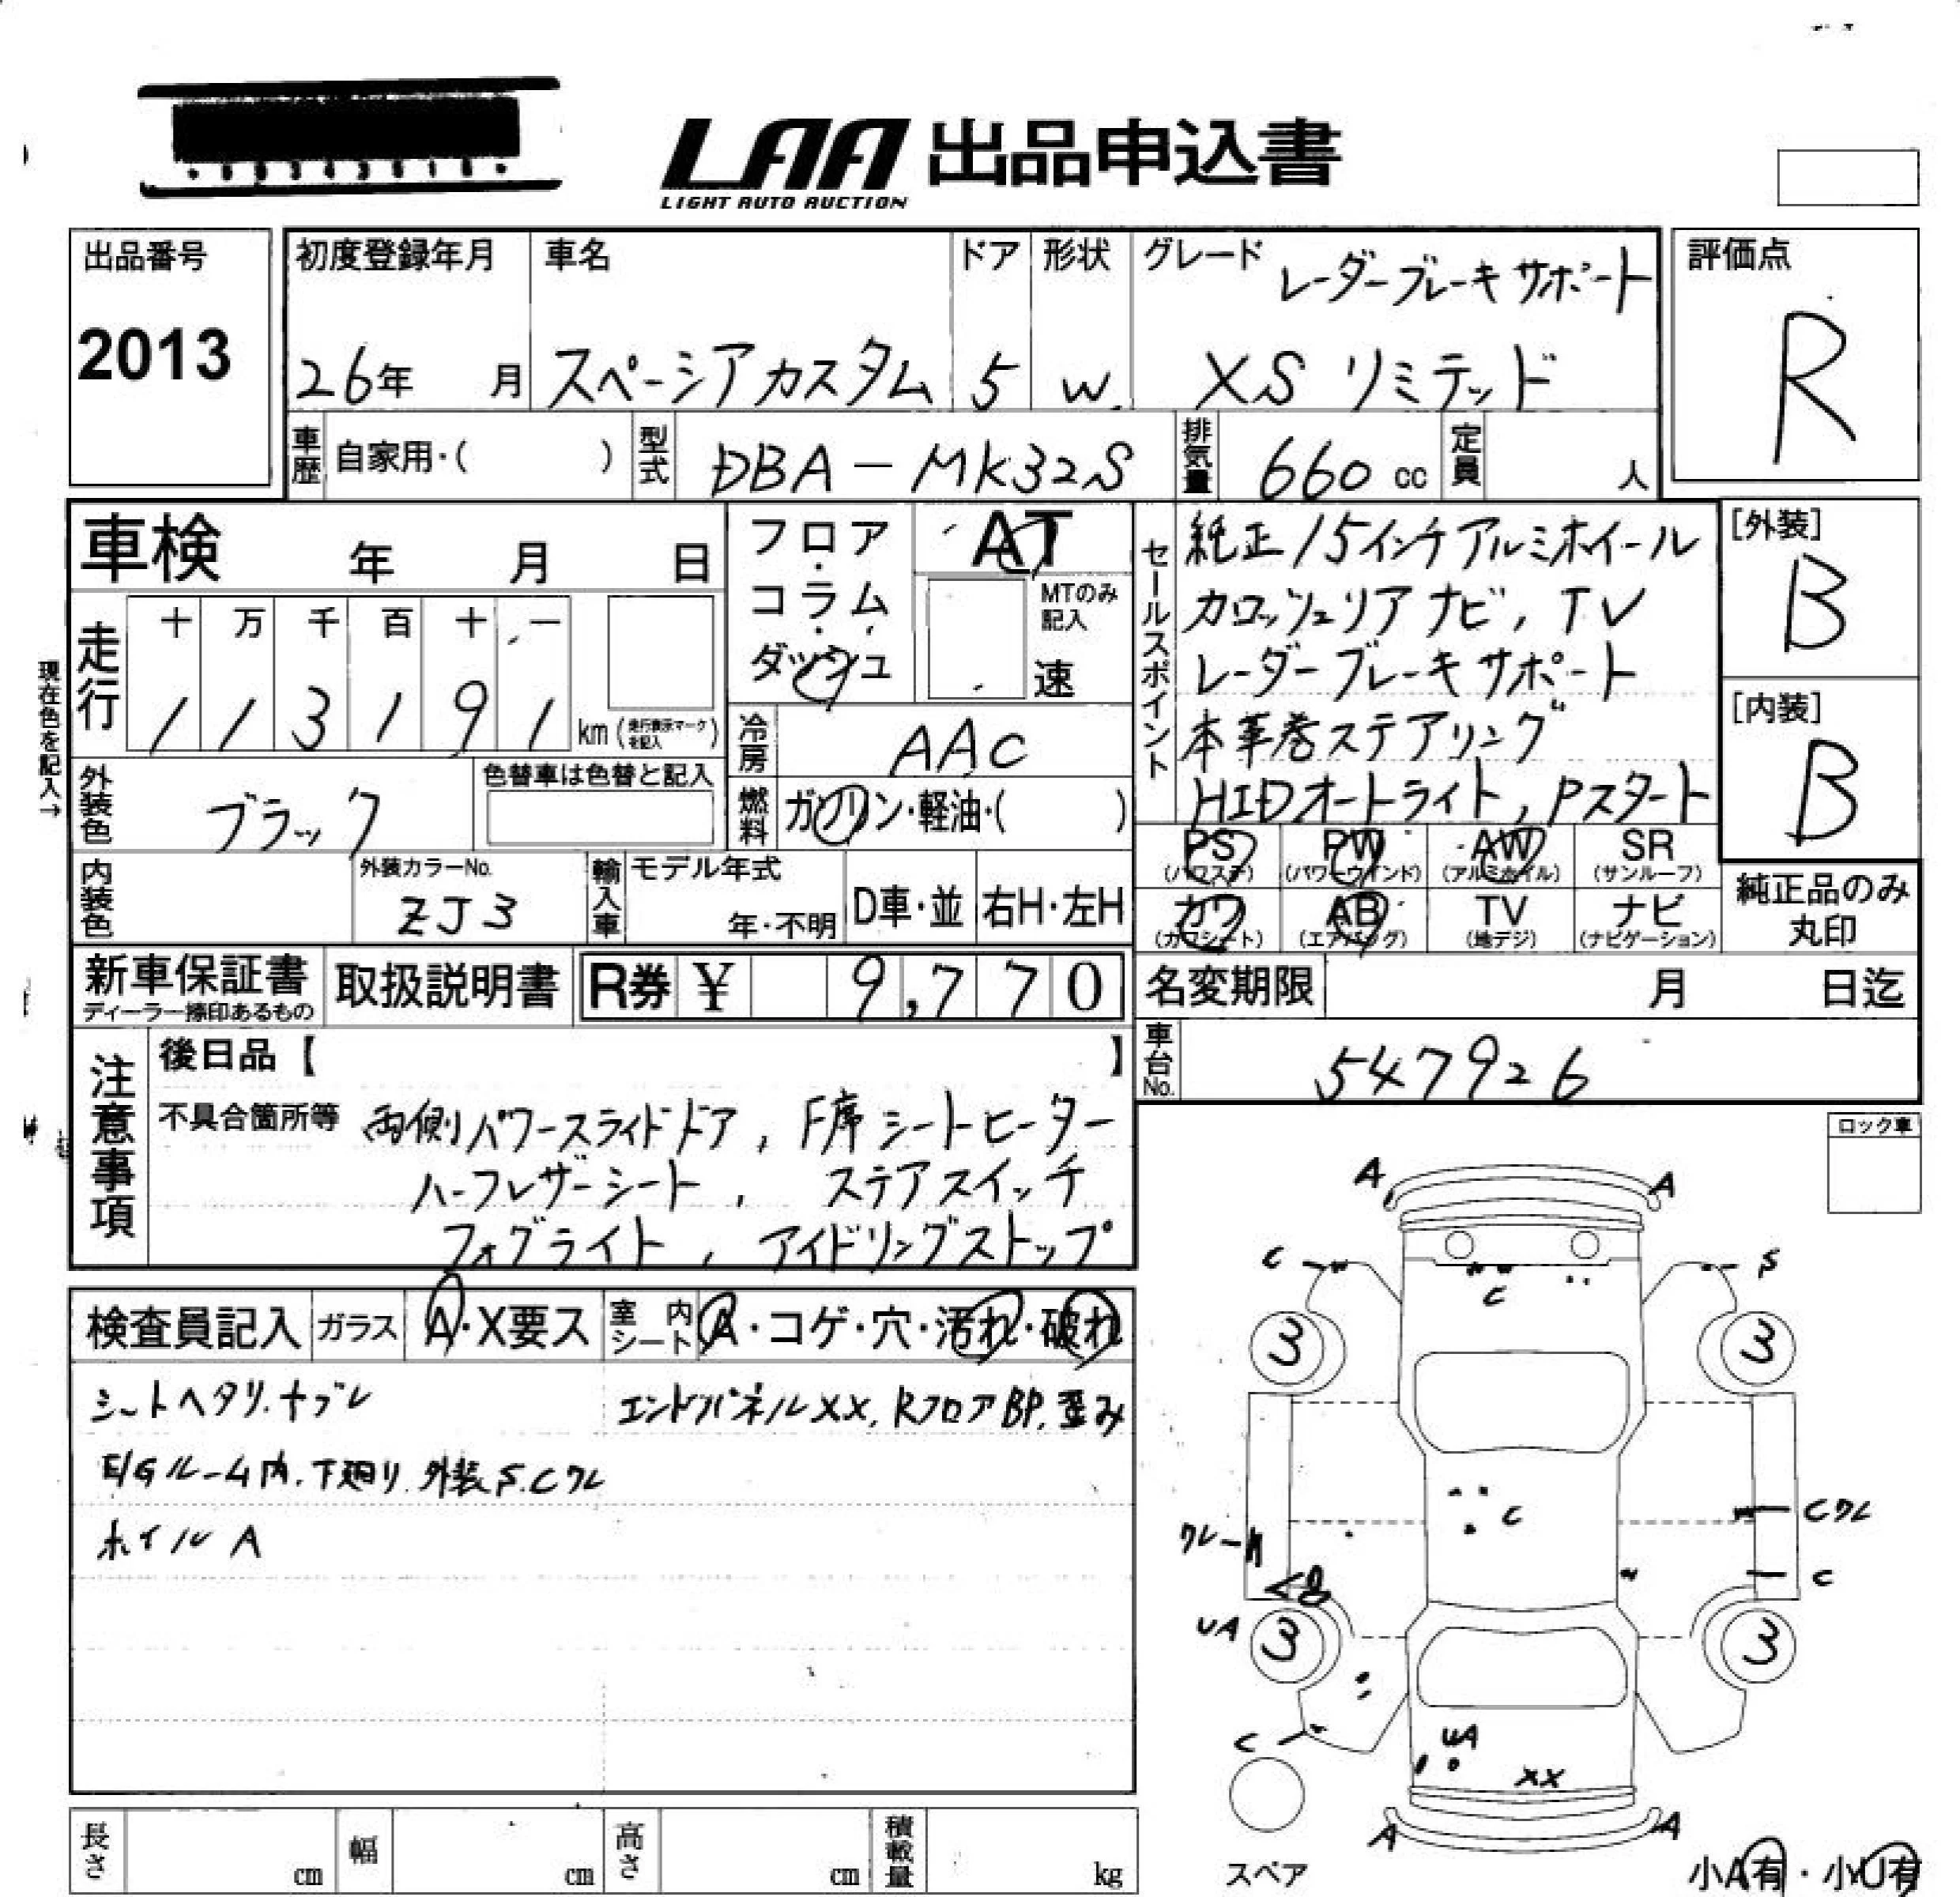 LAA 出品申込書
LIGHT AUTO AUCTION
出品番号
2013
初度登録年月
26年 月
車名
スペーシアカスタム
ドア
5
形状
W.
グレード レーダーブレーキサポート
XS リミテッド
評価点
R
車歴 自家用・( )
型式 DBA-MK32S
排気量 660 cc
定員 人
車検 年 月 日
走行 十 万 千 百 十 一
1 1 3 1 9 1 km (走行表示マークを記入)
現在色を記入→
外装色 ブラック
色替車は色替と記入
内装色
外装カラーNo.
ZJ3
輸入車 モデル年式
年・不明
D車・並
右H・左H
フロア
・
コラム
・
ダッシュ
AT
MTのみ
記入
速
冷房 AAC
燃料 ガソリン・軽油・( )
セールスポイント
純正15インチアルミホイール
カロッツェリア ナビ, TV
レーダーブレーキサポート
本革巻ステアリング
HIDオートライト, Pスタート
[外装]
B
[内装]
B
PS PW AW SR
(パワステ) (パワーウインド) (アルミホイル) (サンルーフ)
カワ AB TV ナビ
(カワシート) (エアバッグ) (地デジ) (ナビゲーション)
純正品のみ
丸印
新車保証書
ディーラー捺印あるもの
取扱説明書
R券 ¥ 9,770
名変期限 月 日迄
車台No. 547926
注意事項
後日品【 】
不具合箇所等 両側パワースライドドア, F席シートヒーター
ハーフレザーシート, ステアスイッチ
フォグライト, アイドリングストップ
ロック車
検査員記入 ガラス A・X要ス 室内シート A・コゲ・穴・汚れ・破れ
シートヘタリ.ナブレ エンドパネルXX, RフロアBP, 歪み
E/Gルーム内.下廻り.外装S.Cクレ
ホイルA
A A
C S
C
3 3
C Cクレ
クレー
C
UA 3 3
C UA
XX
A A
スペア
小A有・小U有
長さ cm 幅 cm 高さ cm 積載量 kg